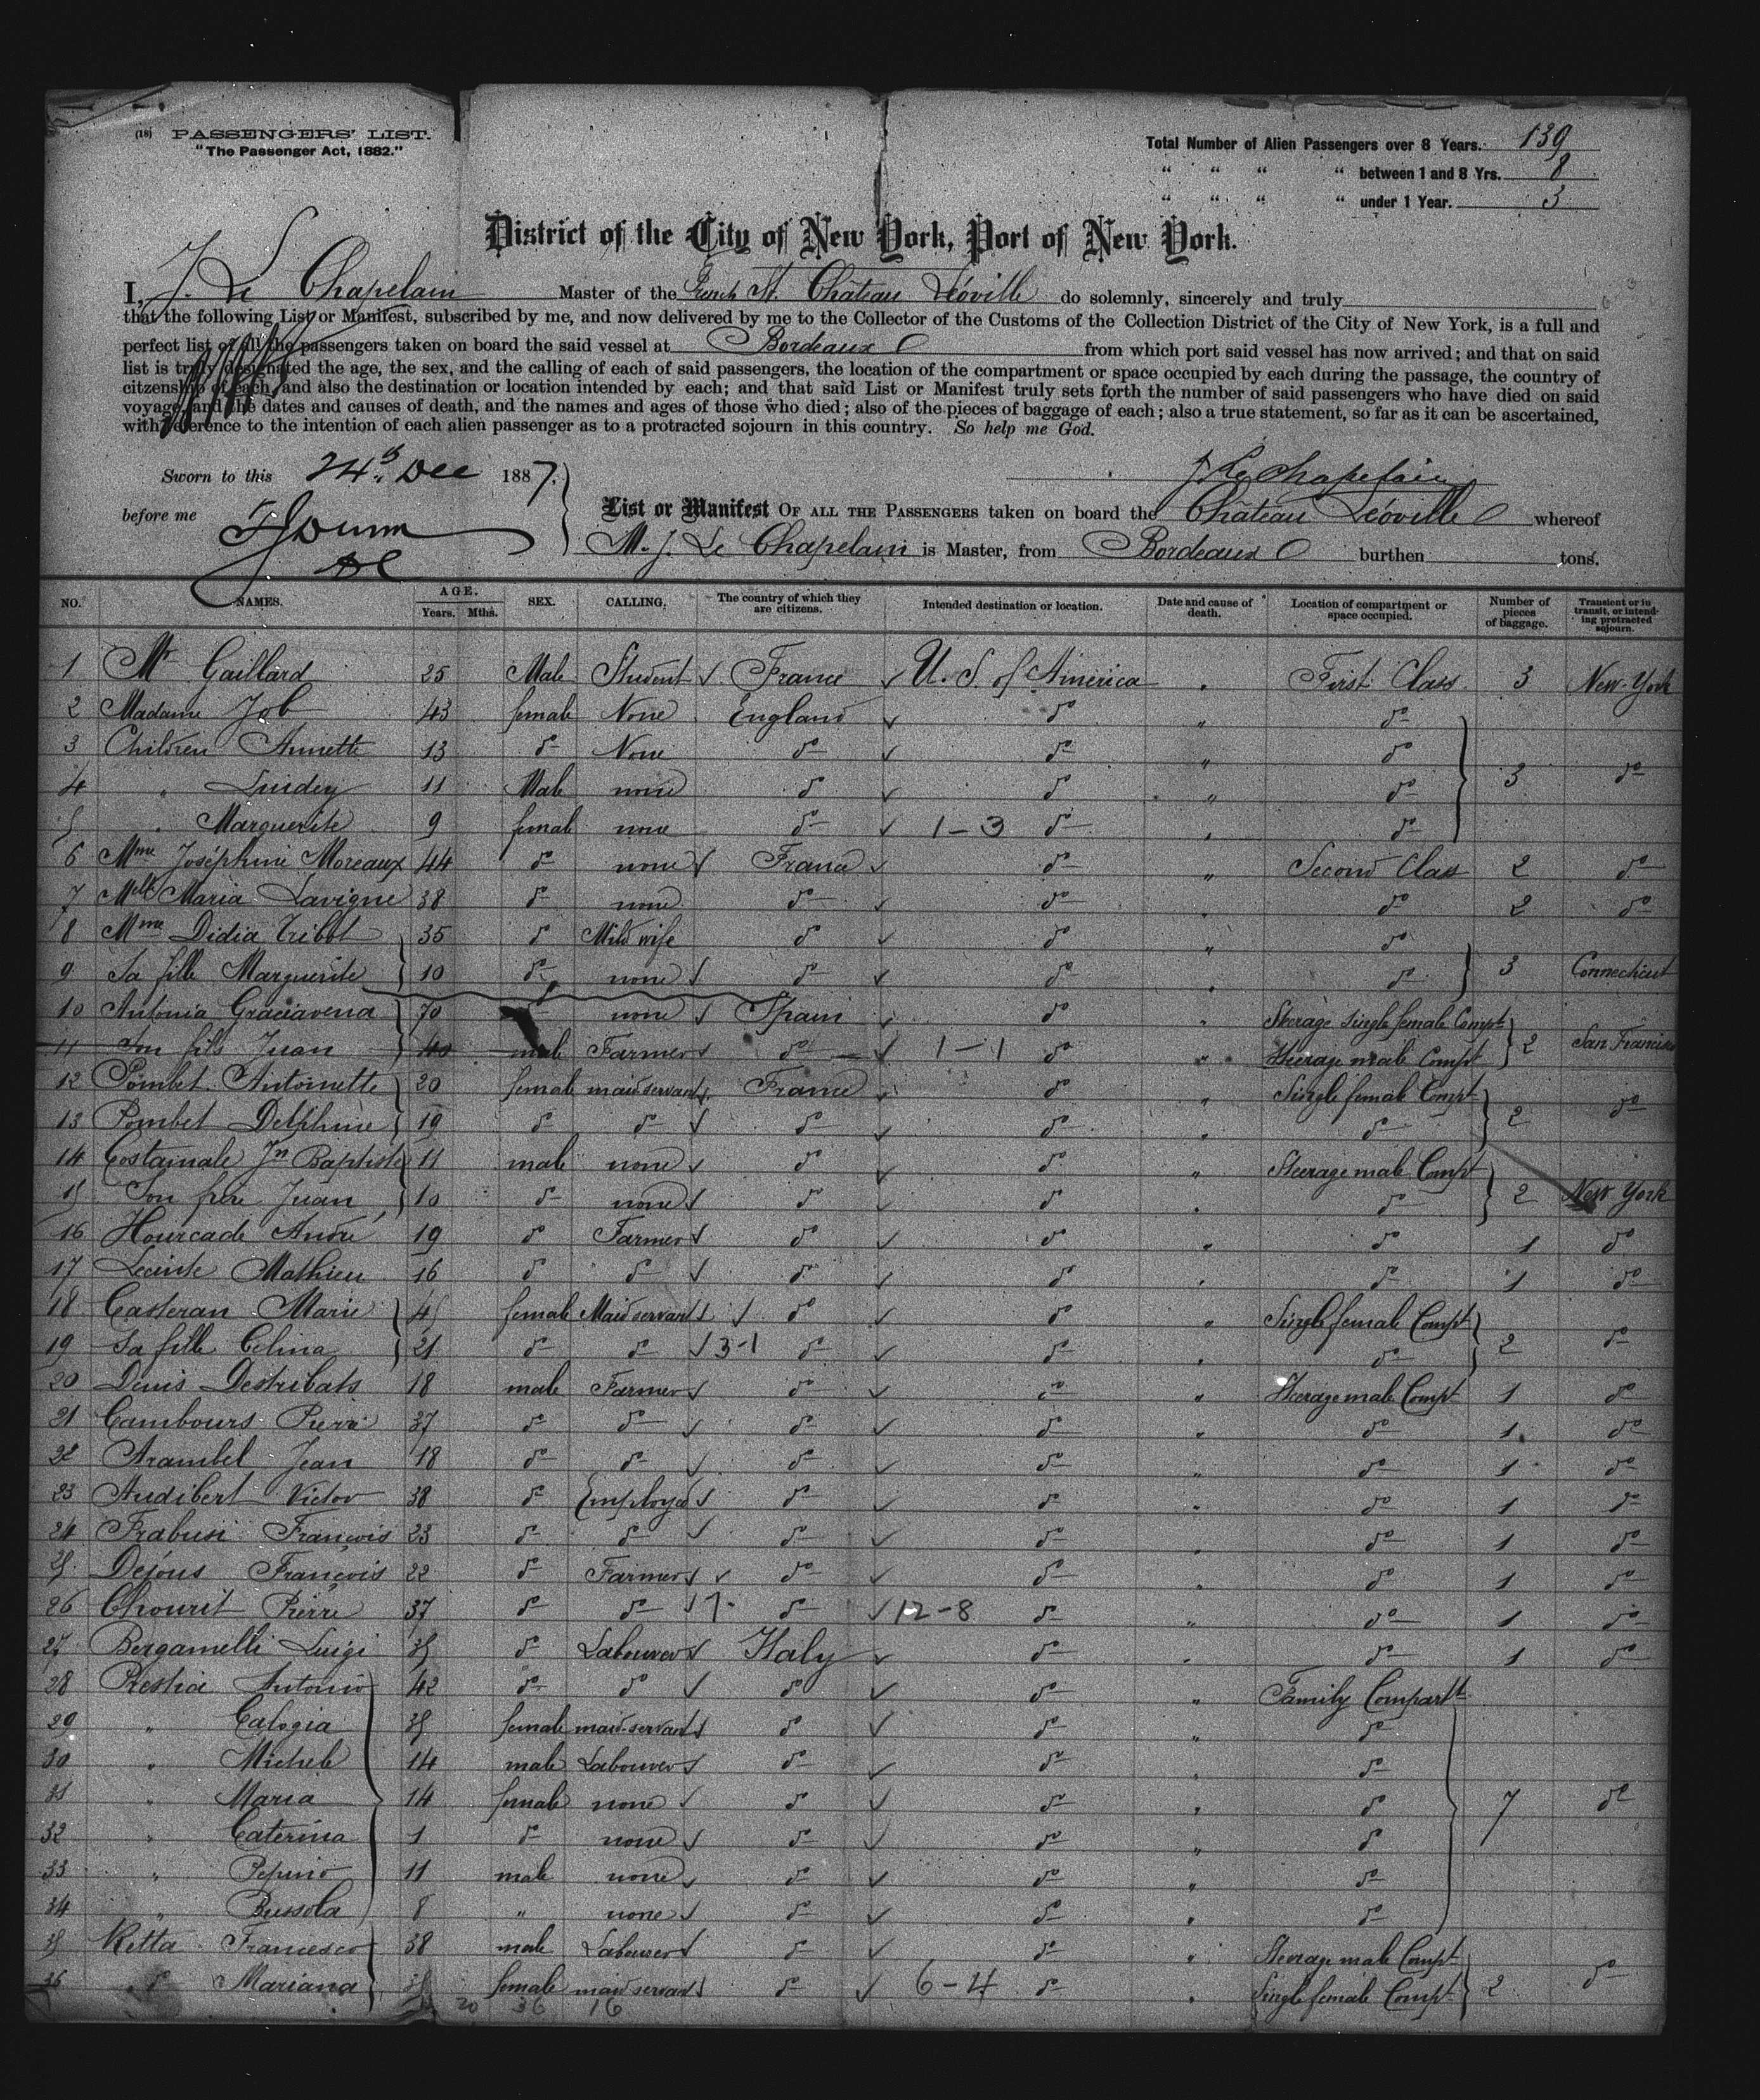 (18) PASSENGERS' LIST.
"The Passenger Act, 1882."
Total Number of Alien Passengers over 8 Years. 139
" " " " between 1 and 8 Yrs. 8
" " " " under 1 Year. 3
District of the City of New York, Port of New York.
I, J. Le Chapelain Master of the French St. Château Léoville do solemnly, sincerely and truly
that the following List or Manifest, subscribed by me, and now delivered by me to the Collector of the Customs of the Collection District of the City of New York, is a full and
perfect list of all the passengers taken on board the said vessel at Bordeaux from which port said vessel has now arrived; and that on said
list is truly designated the age, the sex, and the calling of each of said passengers, the location of the compartment or space occupied by each during the passage, the country of
citzenship of each, and also the destination or location intended by each; and that said List or Manifest truly sets forth the number of said passengers who have died on said
voyage, and the dates and causes of death, and the names and ages of those who died; also of the pieces of baggage of each; also a true statement, so far as it can be ascertained,
with reference to the intention of each alien passenger as to a protracted sojourn in this country. So help me God.
Sworn to this 24th Dec 1887.
J Le Chapelain
before me
List or Manifest OF ALL THE PASSENGERS taken on board the Château Léoville whereof
M. J. Le Chapelain is Master, from Bordeaux burthen tons.
NO. NAMES. AGE. Years. Mths. SEX. CALLING. The country of which they are citizens. Intended destination or location. Date and cause of death. Location of compartment or space occupied. Number of pieces of baggage. Transient or in transit, or intending protracted sojourn.
1 Mr Gaillard 25 Male Student France U. S. of America " First Class 3 New-York
2 Madame Job 43 female None England do " do
3 Children Annette 13 do None do do " do
4 " 11 Male none do do " do 3 do
5 " Marguerite 9 female none do 1-3 do " do
6 Mme Joséphine Moreaux 44 do none France do " Second Class 2 do
7 Melle Maria Lavigne 38 do none do do " do 2 do
8 Mme Didia Tribot 35 do Mild wife do do " do
9 Sa fille Marguerite 10 do none do do " do 3 Connecticut
10 Antonia Graciavena 70 do none Spain do " Steerage single female Compt
11 Son fils Juan 40 male Farmer do 1-1 do " Steerage male Compt 2 San Francisco
12 Pombet Antoinette 20 female maid servant France do " Single female Compt
13 Pombet Delphine 19 do do do do " do 2 do
14 Costamale Jn Baptiste 11 male none do do " Steerage male Compt
15 Son frère Juan 10 do none do do " do 2 New York
16 Hourcade André 19 do Farmer do do " do 1 do
17 Mathieu 16 do do do do " do 1 do
18 Casteran Marie 45 female Maid servant do do " Single female Compt
19 Sa fille Celina 21 do do 3-1 do do " do 2 do
20 Denis Destribats 18 male Farmer do do " Steerage male Compt 1 do
21 Cambours Pierre 37 do do do do " do 1 do
22 Arambel Jean 18 do do do do " do 1 do
23 Audibert Victor 38 do Employed do do " do 1 do
24 Frabusi François 23 do do do do " do 1 do
25 Dejous François 22 do Farmer do do " do 1 do
26 Chourit Pierre 37 do do 7- do 12-8 do " do 1 do
27 Bergamelli Luigi 35 do Labourer Italy do " do 1 do
28 Prestia Antonio 42 do do do do " Family Compartt
29 " Calogia 35 female maid-servant do do " do
30 " Michele 14 male Labourer do do " do
31 " Maria 14 female none do do " do 7 do
32 " Caterina 1 do none do do " do
33 " Pepino 11 male none do do " do
34 " Bussola 8 " none do do " do
35 Retta Francesco 38 male Labourer do do " Steerage male Compt
36 do Mariana 35 female maid servant do 6-4 do " Single female Compt 2 do
20 36 16